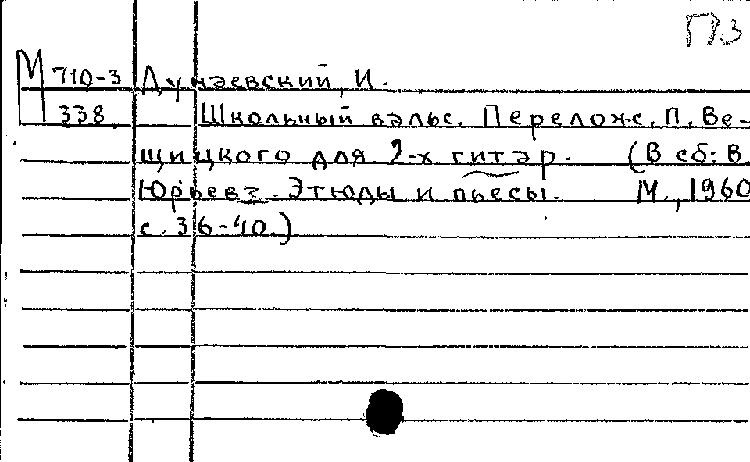 П3
М 710-3 Дунаевский, И.
338 Школьный вальс. Переложс. П. Ве-
щицкого для 2-х гитар. (В сб: В.
Юрьева. Этюды и пьесы. М., 1960
с. 36-40.)